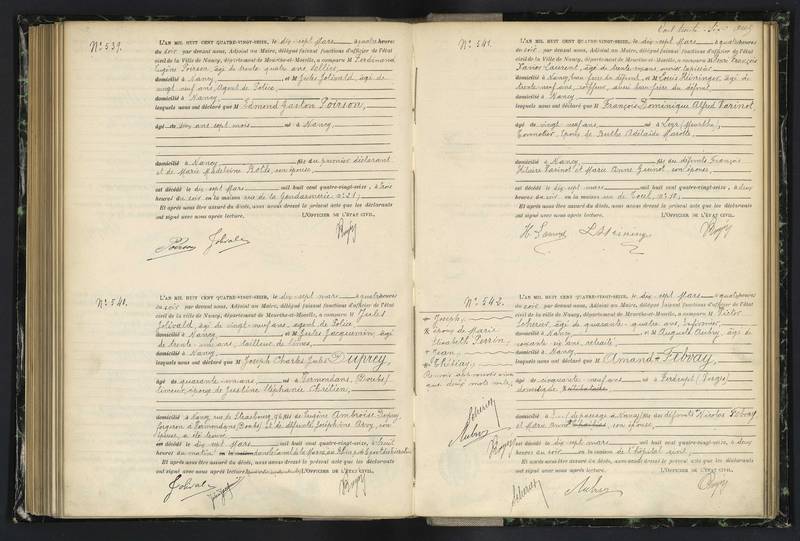 N° 539.
L'AN MIL HUIT CENT QUATRE-VINGT-SEIZE, le dix-sept Mars à quatre heures
du soir par devant nous, Adjoint au Maire, délégué faisant fonctions d'officier de l'état
civil de la Ville de Nancy, département de Meurthe-et-Moselle, a comparu M Ferdinand
Eugène Poirson, âgé de trente quatre ans, sellier
domicilié à Nancy et M Jules Jolivald, âgé de
vingt neuf ans, Agent de Police,
domicilié à Nancy
lesquels nous ont déclaré que M Edmond Gaston Poirson,
âgé de ans sept mois né à Nancy,
domicilié à Nancy fils du premier déclarant
et de Marie Madeleine Rolte, son épouse,
est décédé le dix-sept Mars mil huit cent quatre-vingt-seize, à trois
heures du soir en la maison rue de la Gendarmerie n° 21;
Et après nous être assuré du décès, nous avons dressé le présent acte que les déclarants
ont signé avec nous après lecture. L'OFFICIER DE L'ÉTAT CIVIL,
Poirson Jolivald
N° 540.
L'AN MIL HUIT CENT QUATRE-VINGT-SEIZE, le dix-sept mars à quatre heures
du soir par devant nous, Adjoint au Maire, délégué faisant fonctions d'officier de l'état
civil de la Ville de Nancy, département de Meurthe-et-Moselle, a comparu M Jules
Jolivald, âgé de vingt-neuf ans, agent de Police,
domicilié à Nancy et M Jules Jacquemin, âgé
de trente-un ans, tailleur de limes,
domicilié à Nancy
lesquels nous ont déclaré que M Joseph Charles Jules Duprey,
âgé de quarante-un ans, né à Vermondans, (Doubs)
époux de Justine Stéphanie Chrétien,
domicilié à Nancy, rue de Strasbourg fils de Eugène Ambroise Duprey
forgeron à Vermondans (Doubs) et de défunte Joséphine son
épouse, a été trouvé
est décédé le dix-sept Mars mil huit cent quatre-vingt-seize, à
heures du matin en la maison dans le canal de la Marne au Rhin
Et après nous être assuré du décès, nous avons dressé le présent acte que les déclarants
ont signé avec nous après lecture. L'OFFICIER DE L'ÉTAT CIVIL,
Jolivald
N° 541.
L'AN MIL HUIT CENT QUATRE-VINGT-SEIZE, le dix-sept Mars à quatre heures
du soir par devant nous, Adjoint au Maire, délégué faisant fonctions d'officier de l'état
civil de la Ville de Nancy, département de Meurthe-et-Moselle, a comparu M Henri François
Laurent, âgé de trente
domicilié à Nancy, beau frère du défunt, et M Louis Heininger, âgé de
trente neuf ans, coiffeur, aussi beau-frère du défunt,
domicilié à Nancy
lesquels nous ont déclaré que M François Dominique Alfred Varinot
âgé de vingt neuf ans né à Leyr (Meurthe),
Cordonnier, époux de Berthe Adélaïde
domicilié à Nancy fils de défunts François
Hilaire Varinot et Marie Anne son épouse,
est décédé le dix-sept mars mil huit cent quatre-vingt-seize, à deux
heures du soir en la maison rue de Toul, n° 18,
Et après nous être assuré du décès, nous avons dressé le présent acte que les déclarants
ont signé avec nous après lecture. L'OFFICIER DE L'ÉTAT CIVIL,
N° 542.
+ Joseph,
époux de Marie
Elisabeth Perrin,
+ Jean,
L'AN MIL HUIT CENT QUATRE-VINGT-SEIZE, le dix-sept Mars à quatre heures
du soir par devant nous, Adjoint au Maire, délégué faisant fonctions d'officier de l'état
civil de la Ville de Nancy, département de Meurthe-et-Moselle, a comparu M Victor
âgé de quarante-quatre ans, infirmier,
domicilié à Nancy et M Auguste Aubry, âgé de
soixante ans, retraité,
domicilié à Nancy
lesquels nous ont déclaré que M Amand + Febvay,
âgé de cinquante neuf ans né à Ferdrupt (Vosges)
domestique
domicilié à de passage à Nancy, fils de défunts Nicolas Febvay
et Marie son épouse,
est décédé le dix-sept mars mil huit cent quatre-vingt-seize, à deux
heures du soir en la maison de l'hôpital civil,
Et après nous être assuré du décès, nous avons dressé le présent acte que les déclarants
ont signé avec nous après lecture. L'OFFICIER DE L'ÉTAT CIVIL,
Aubry